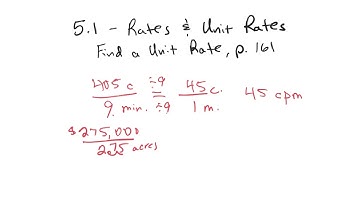 5.1 - Rates & Unit Rates
Find a Unit Rate, p. 161
405 c ÷9 = 45 c. 45 cpm
9 min. ÷9 1 m.
$275,000
2.75 acres